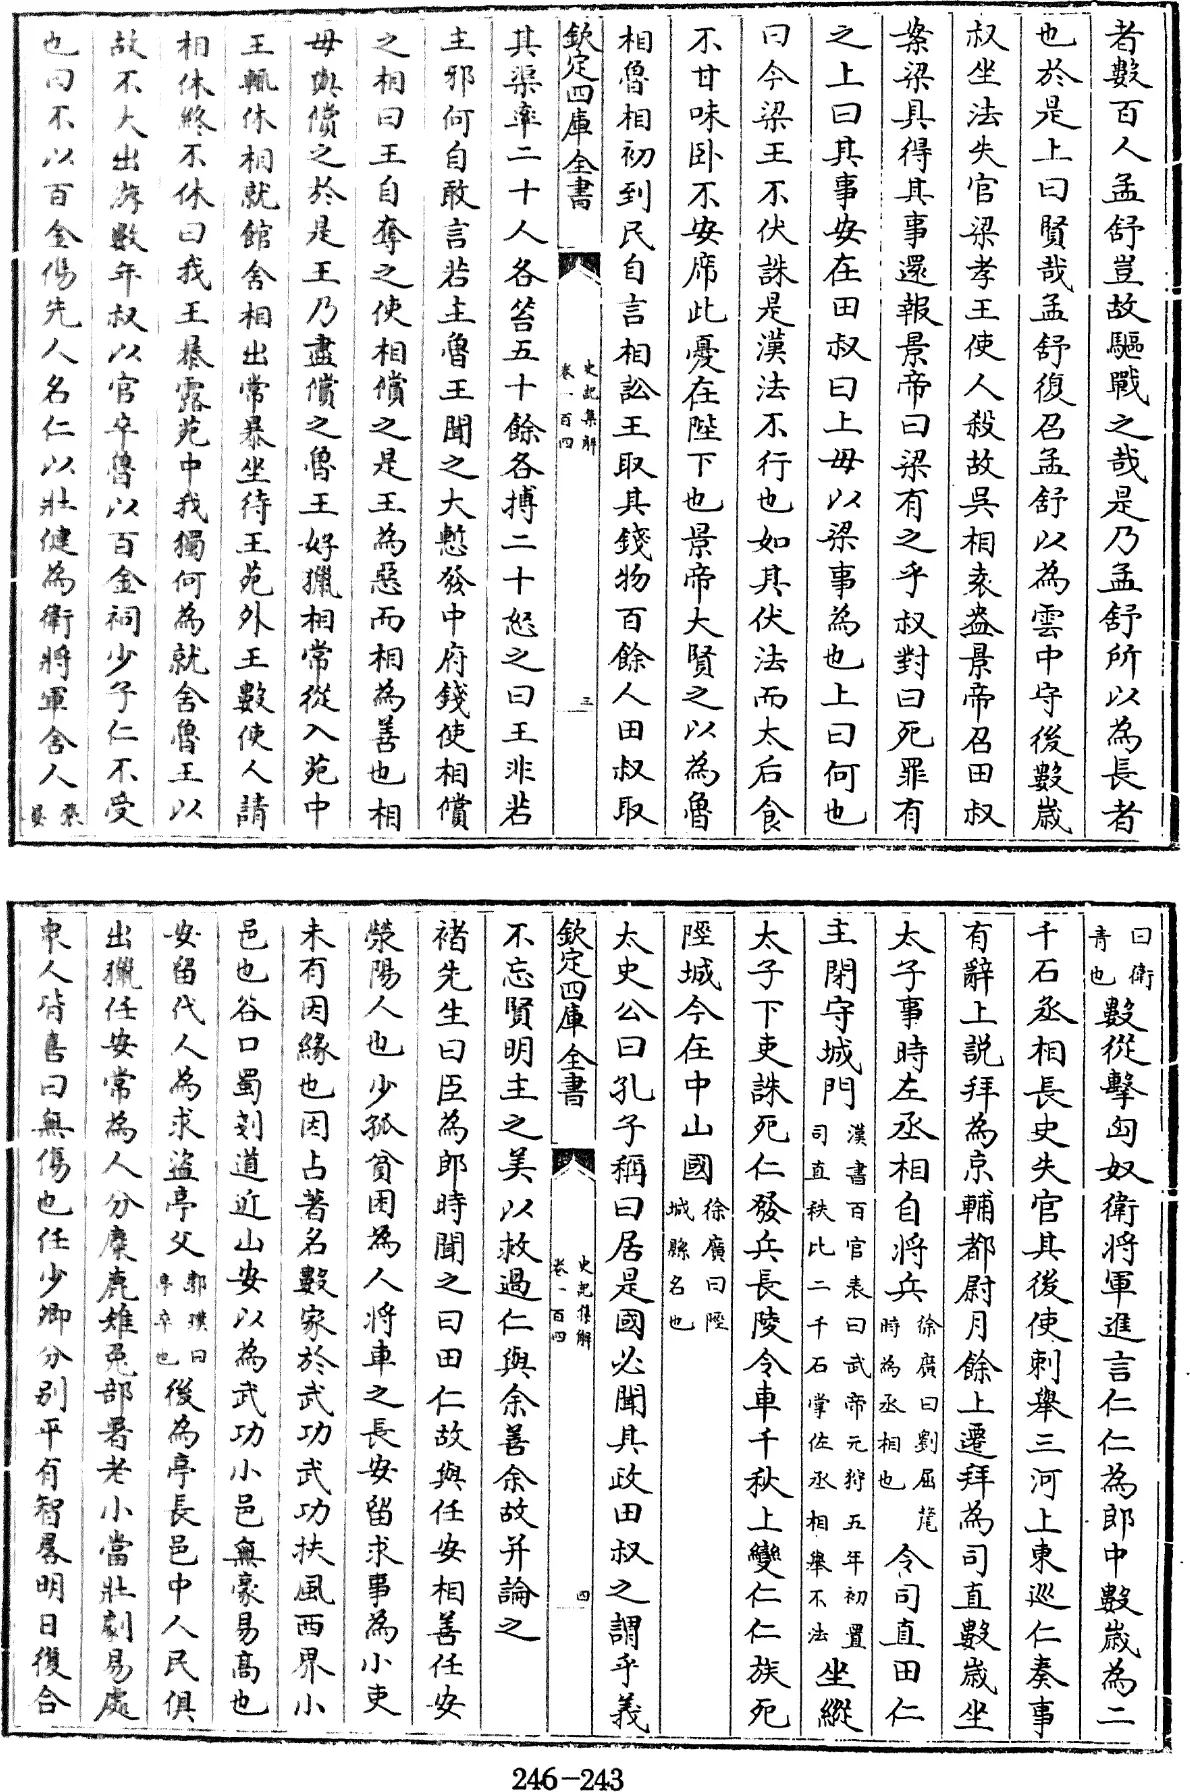 者數百人孟舒豈故驅戰之哉是乃孟舒所以為長者
也於是上曰賢哉孟舒復召孟舒以為雲中守後數歲
叔坐法失官梁孝王使人殺故吳相袁盎景帝召田叔
案梁具得其事還報景帝曰梁有之乎叔對曰死罪有
之上曰其事安在田叔曰上毋以梁事為也上曰何也
曰今梁王不伏誅是漢法不行也如其伏法而太后食
不甘味卧不安席此憂在陛下也景帝大賢之以為魯
相魯相初到民自言相訟王取其錢物百餘人田叔取
欽定四庫全書
史記集解
卷一百四
三
其渠率二十人各笞五十餘各搏二十怒之曰王非若
主邪何自敢言若主魯王聞之大慙發中府錢使相償
之相曰王自奪之使相償之是王為惡而相為善也相
毋與償之於是王乃盡償之魯王好獵相常從入苑中
王輒休相就館舍相出常暴坐待王苑外王數使人請
相休終不休曰我王暴露苑中我獨何為就舍魯王以
故不大出游數年叔以官卒魯以百金祠少子仁不受
也曰不以百金傷先人名仁以壯健為衛將軍舍人
張
晏
曰衛
青也
數從擊匈奴衛將軍進言仁仁為郎中數歲為二
千石丞相長史失官其後使刺舉三河上東巡仁奏事
有辭上説拜為京輔都尉月餘上遷拜為司直數歲坐
太子事時左丞相自將兵
徐廣曰劉屈氂
時為丞相也
令司直田仁
主閉守城門
漢書百官表曰武帝元狩五年初置
司直秩比二千石掌佐丞相舉不法
坐縱
太子下吏誅死仁發兵長陵令車千秋上變仁仁族死
陘城今在中山國
徐廣曰陘
城縣名也
太史公曰孔子稱曰居是國必聞其政田叔之謂乎義
欽定四庫全書
史記集解
卷一百四
四
不忘賢明主之美以救過仁與余善余故并論之
褚先生曰臣為郎時聞之曰田仁故與任安相善任安
滎陽人也少孤貧困為人將車之長安留求事為小吏
未有因緣也因占著名數家於武功武功扶風西界小
邑也谷口蜀剗道近山安以為武功小邑無豪易高也
安留代人為求盜亭父
郭璞曰
亭卒也
後為亭長邑中人民俱
出獵任安常為人分麋鹿雉兎部署老小當壯劇易處
衆人皆喜曰無傷也任少卿分别平有智畧明日復合
246-243